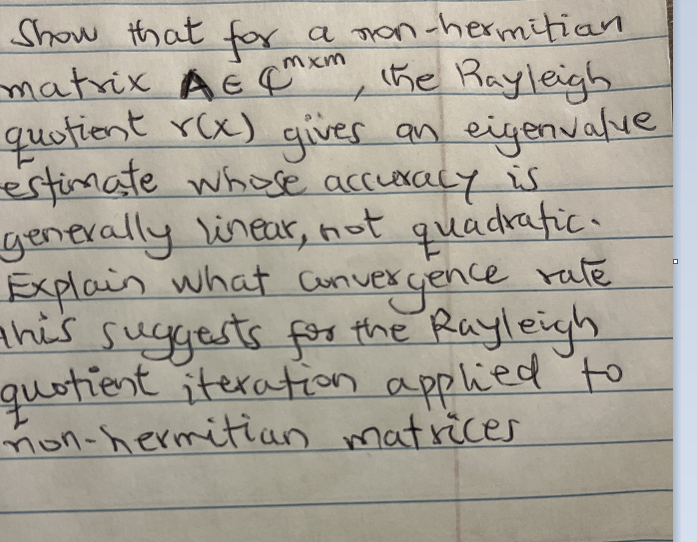 Show that for a non-hermitian
matrix A ∈ ℂ^{m×m}, the Rayleigh
quotient r(x) gives an eigenvalue
estimate whose accuracy is
generally linear, not quadratic.
Explain what convergence rate
this suggests for the Rayleigh
quotient iteration applied to
non-hermitian matrices